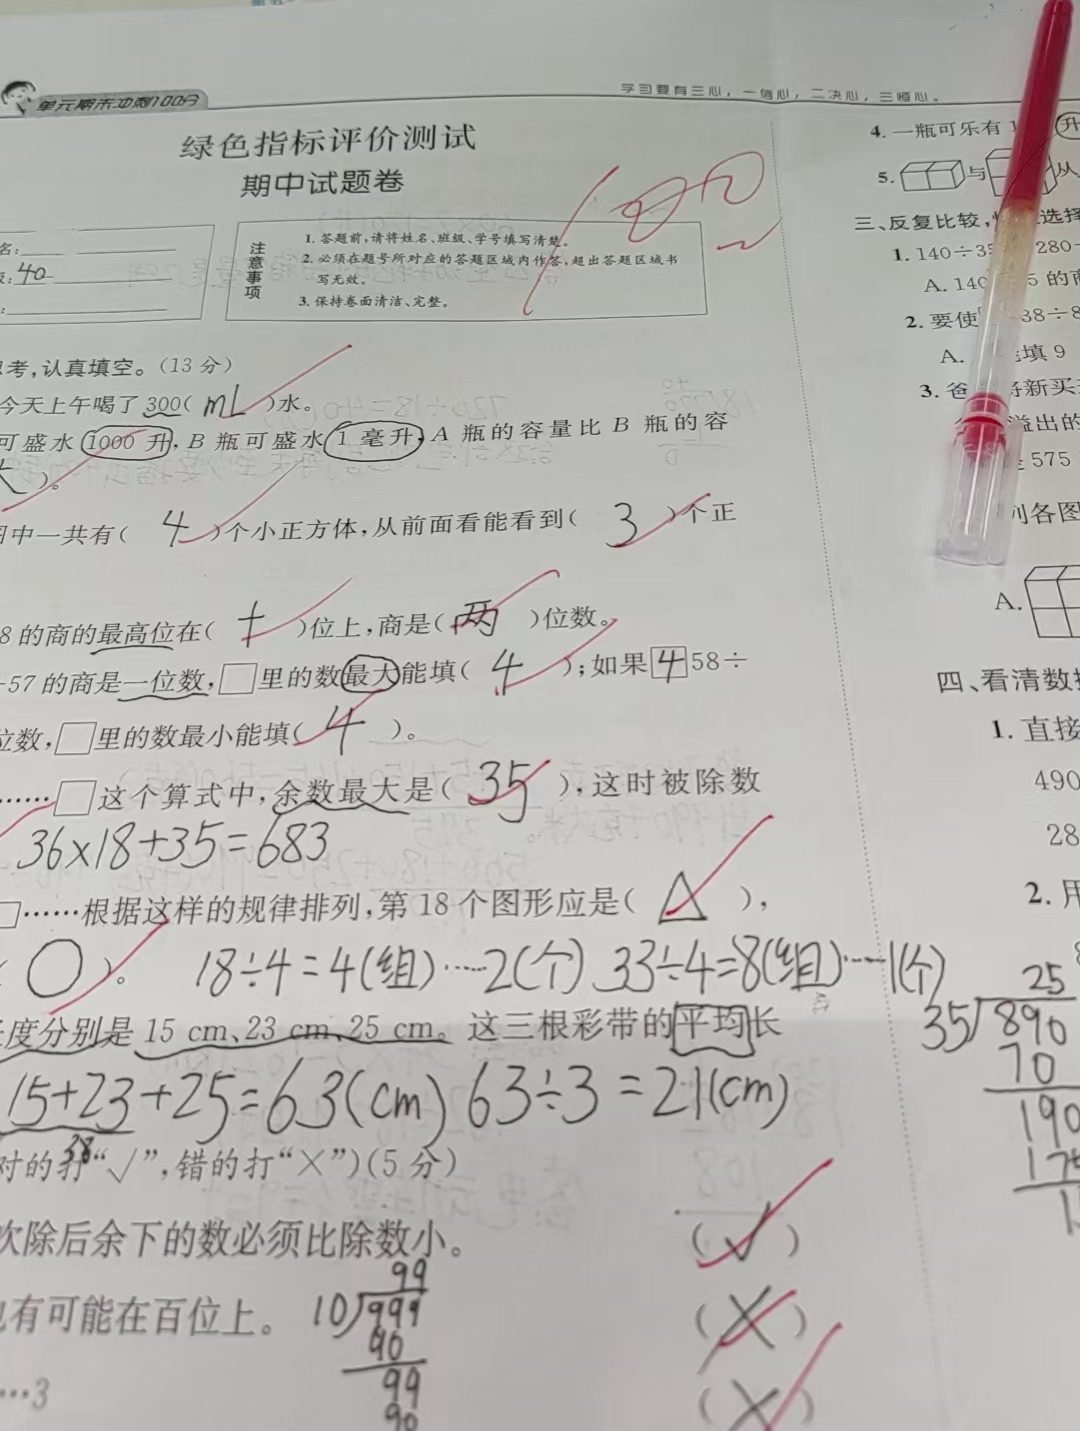 单元期末冲刺100分
学习要有三心，一信心，二决心，三恒心。
绿色指标评价测试
期中试题卷
100
名：
级：40
注意事项
1. 答题前，请将姓名、班级、学号填写清楚。
2. 必须在题号所对应的答题区域内作答，超出答题区域书
写无效。
3. 保持卷面清洁、完整。
思考，认真填空。（13 分）
今天上午喝了 300( mL )水。
可盛水 1000 升，B 瓶可盛水 1 毫升，A 瓶的容量比 B 瓶的容
大 )。
图中一共有( 4 )个小正方体，从前面看能看到( 3 )个正
8 的商的最高位在( 十 )位上，商是( 两 )位数。
57 的商是一位数，□里的数最大能填( 4 )；如果 4 58÷
位数，□里的数最小能填( 4 )。
……□这个算式中，余数最大是( 35 )，这时被除数
36×18+35=683
□……根据这样的规律排列，第 18 个图形应是( △ )，
( ○ )。 18÷4=4(组)……2(个) 33÷4=8(组)……1(个)
长度分别是 15 cm、23 cm、25 cm。这三根彩带的平均长
15+23+25=63(cm) 63÷3=21(cm)
38
对的打“√”，错的打“×”)(5 分)
次除后余下的数必须比除数小。 (√)
也有可能在百位上。 (×)
99
10 999
90
99
90
…3 (×)
4. 一瓶可乐有 1 升
5. 与 从
三、反复比较，选择
1. 140÷35 280
A. 140 5 的商
2. 要使 38÷8
A. 填 9
3. 爸 将新买
溢出的
575
列各图
A.
四、看清数
1. 直接
490
28
2. 用
25
35 890
70
190
175
1